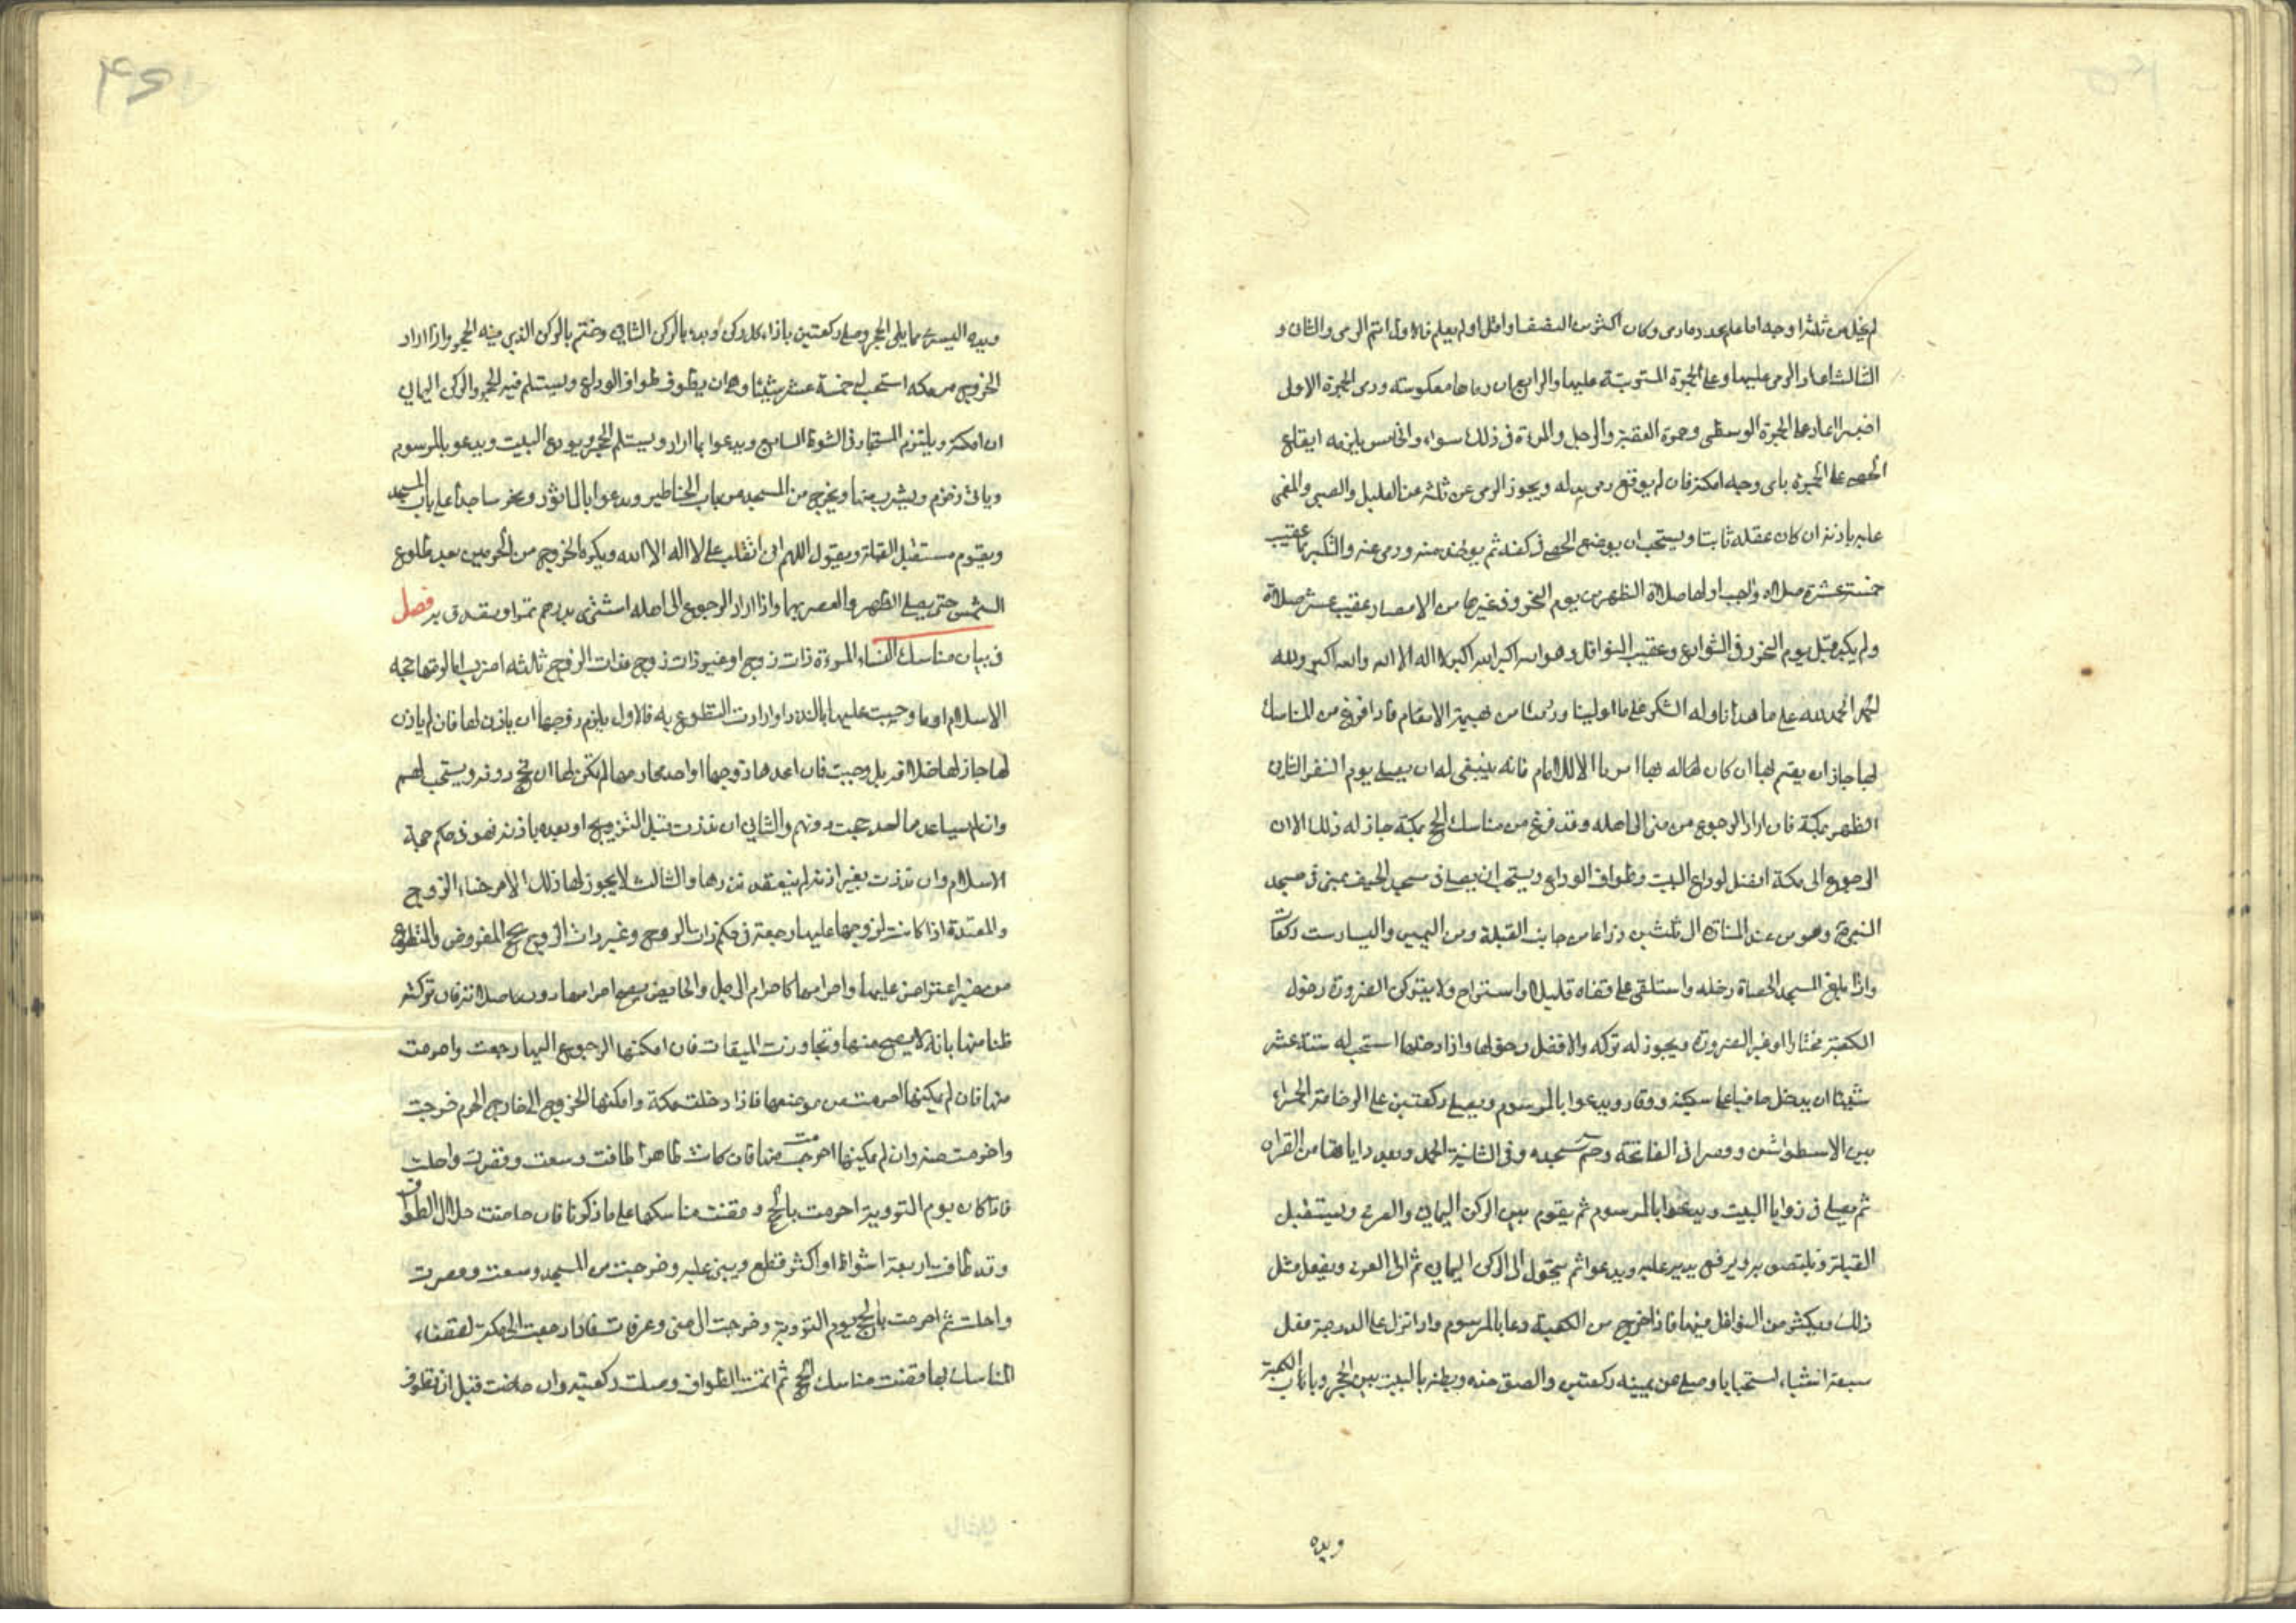 لم يخل من ثلثة اوجه اما علم عدد ما رمى وكان اكثر من النصف او اقل او لم يعلم فالاول اتم الرمى والثانى و
الثالث اعاد الرمى عليها وعلى الجمرة المترتبة عليها والرابع ان رماها معكوسته ورمى الجمرة الاولى
اخيرا اعاد على الجمرة الوسطى وجمرة العقبة والرجل والمرءة فى ذلك سواء والخامس يلزمه ايقاع
الحصى على الجمرة باى وجه امكنه فان لم يوقع رمى بدله ويجوز الرمى عن ثلثة عن العليل والصبى والمغمى
عليه باذنه ان كان عقله ثابتا ويستحب ان يوضع الحصى فى كفه ثم يوخذ منه ورمى عنه والتكبير بها عقيب
خمسة عشرة صلاة واجب اولها صلاة الظهر من يوم النحر وفى غيرها من الامصار عقيب عشر صلاة
ولم يكبر قبل يوم النحر وفى الشوارع وعقيب النوافل وهو الله اكبر الله اكبر لا اله الا الله والله اكبر ولله
الحمد لله على ما هدانا وله الشكر على ما اولينا ورزقنا من بهيمة الانعام فاذا فرغ من المناسك
لها جاز ان يقيم بها ان كان له بها الا الامام فانه ينبغى له ان يصلى يوم النفر الثانى
الظهر بمكة فان اراد الرجوع من منى الى اهله وقد فرغ من مناسك الحج بمكة جاز له ذلك الا ان
الرجوع الى مكة افضل لوداع البيت وطواف الوداع ويستحب ان يصلى فى مسجد الخيف بمنى فى مسجد
النبى ص وهو من عند المنارة الى ثلثين ذراعا من جانب القبلة ومن اليمين واليسار ست ركعات
واذا بلغ المسجد الحصباة دخله واستلقى على قفاه قليلا واستراح ولا يترك الصرورة دخول
الكعبة مختارا وغير الصرورة ويجوز له تركه والافضل دخولها واذا دخلها استحب له ستة عشر
شيئا ان يدخل حافيا على سكينة ووقار ويدعوا بالمرسوم ويصلى ركعتين على الرخامة الحمراء
بين الاسطوانتين وقرا فى الفاتحة وحم سجده وفى الثانية الحمد وبعدد اياتها من القران
ثم يصلى فى زوايا البيت ويدعوا بالمرسوم ثم يقوم بين الركن اليمانى والغربى ويستقبل
القبلة ويلتصق به ويرفع يديه عليه ويدعوا ثم يتحول الى الركن اليمانى ثم الى الغربى ويفعل مثل
ذلك ويكثر من النوافل فيها فاذا خرج من الكعبة دعا بالمرسوم واذا نزل على الدرجة فعل
سبعة اشياء استحبابا وصلى عن يمينه ركعتين والصق خده وبطنه بالبيت بين الحجر وباب الكعبة
ويده
ويده اليسرى مما يلى الحجر وصلى ركعتين بازاء كل ركن وبدء بالركن الثانى وختم بالركن الذى فيه الحجر واذا اراد
الخروج من مكه استحب له خمسة عشر شيئا وهى ان يطوف طواف الوداع ويستلم فيه الحجر والركن اليمانى
ان امكنه ويلتزم المستجار فى الشوط السابع ويدعوا بما اراد ويستلم الحجر ويودع البيت ويدعو بالمرسوم
وياتى زمزم ويشرب منها ويخرج من المسجد من باب الحناطين ويدعوا بالماثور ويخر ساجدا على باب المسجد
ويقوم مستقبل القبلة ويقول اللهم انى انقلب على لا اله الا الله ويكره الخروج من الحرمين بعد طلوع
الشمس حتى يصلى الظهر والعصر بهما واذا اراد الرجوع الى اهله اشترى بدرهم تمرا وتصدق به فصل
فى بيان مناسك النساء المرءة ذات زوج او غير ذات زوج فذات الزوج ثلاثة اضرب اما لزمتها حجة
الاسلام او ما وجبت عليها بالنذر او ارادت التطوع به فالاول يلزم زوجها ان ياذن لها فان لم ياذن
لها جاز لها خلافه بل وجبت فان اعدها زوجها او احد محارمها لم يكن لها ان تحج دونه ويستحب لهم
وان لم يساعدها احد حجت دونهم والثانى ان نذرت قبل التزويج او بعده باذنه فهو فى حكم حجة
الاسلام وان نذرت بغير اذنه لم ينعقد نذرها والثالث لا يجوز لها ذلك الا برضاء الزوج
والمعتدة اذا كانت لزوجها عليها رجعة فى حكم ذات الزوج وغير ذات الزوج يحج المفروض والتطوع
من غير اعتراض عليها واحرامها كاحرام الرجل والحائض يصح احرامها دون صلاته فان تركته
ظنا منها بانه لا يصح منها وتجاوزت الميقات فان امكنها الرجوع اليها رجعت واحرمت
منها فان لم يمكنها احرمت من موضعها فاذا دخلت مكة وامكنها الخروج الى خارج الحرم خرجت
واحرمت منه وان لم يمكنها احرمت منها فان كانت طاهرا طافت وسعت وقصرت واحلت
فاذا كان يوم التروية احرمت بالحج وقضت مناسكها على ما ذكرنا فان حاضت خلال الطواف
وقد طافت اربعة اشواط او اكثر قطع ويبنى عليه وخرجت من المسجد وسعت وقصرت
واحلت ثم احرمت بالحج يوم التروية وخرجت الى منى وعرفات فاذا رجعت الى مكة لقضاء
المناسك بها قضت مناسك الحج ثم اتمت الطواف وصلت ركعتيه وان حاضت قبل ان تطوف